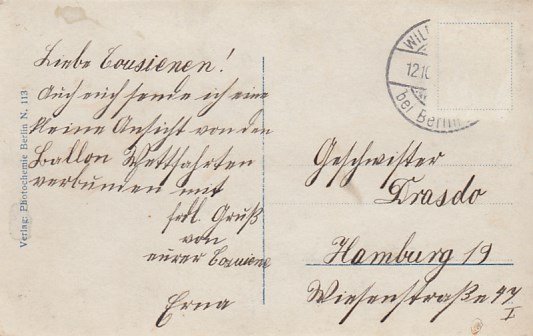 Liebe Cousienen!
Auch euch sende ich eine
kleine Ansicht von den
Ballon Wettfahrten
verbunen mit
frdl. Gruß
von
eurer Cousiene
Erna
Verlag: Photochemie Berlin N. 113
WIL
12.10
bei Berlin
Geschwister
Drasdo
Hamburg 19
Wiesenstraße 47
I